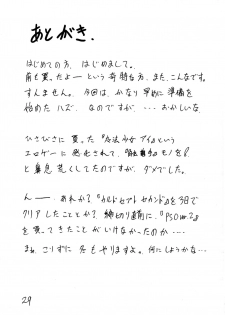 あとがき.
はじめての方、はじめまして。
前も買ったよーという奇特な方、また、こんなです。
すんません。今回は、かなり早めに準備を
始めたハズ、なのですが、…おかしいな。
ひさびさに買った『魔法少女アイ』という
エロゲーに感化されて、モノを
と鼻息荒くしてたのですが、ダメでした。
んー、あれか?『カルドセプトセカンド』を3日で
クリアしたことか?締切り直前に、『PSO ver.2』
を買ってきたことがいけなかったのか…
まぁ、こりずに冬もやりますよ。何にしようかな…
29